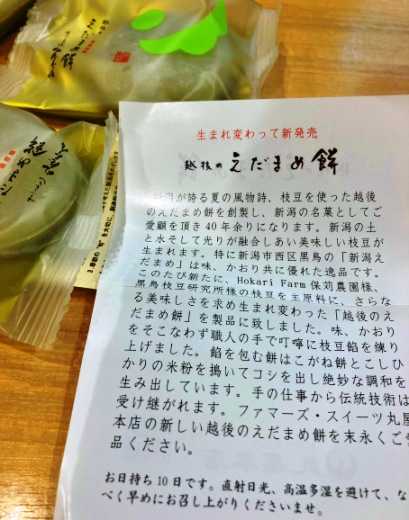 生まれ変わって新発売
越後のえだまめ餅
が誇る夏の風物詩、枝豆を使った越後
のえだまめ餅を創製し、新潟の名菓としてご
愛顧を頂き40年余りになります。新潟の土
と水そして光りが融合しあい美味しい枝豆が
生まれます。特に新潟市西区黒鳥の「新潟え
だまめ」は味、かおり共に優れた逸品です。
このたび新たに、Hokari Farm 保苅農園様、
黒鳥枝豆研究所様の枝豆を主原料に、さらな
る美味しさを求め生まれ変わった「越後のえ
だまめ餅」を製品に致しました。味、かおり
をそこなわず職人の手で叮嚀に枝豆餡を練り
上げました。餡を包む餅はこがね餅とこしひ
かりの米粉を搗いてコシを出し絶妙な調和を
生み出しています。手の仕事から伝統技術は
受け継がれます。ファマーズ・スイーツ丸屋
本店の新しい越後のえだまめ餅を末永くご
品ください。
お日持ち10日です。直射日光、高温多湿を避けて、な
べく早めにお召し上がりくださいませ。